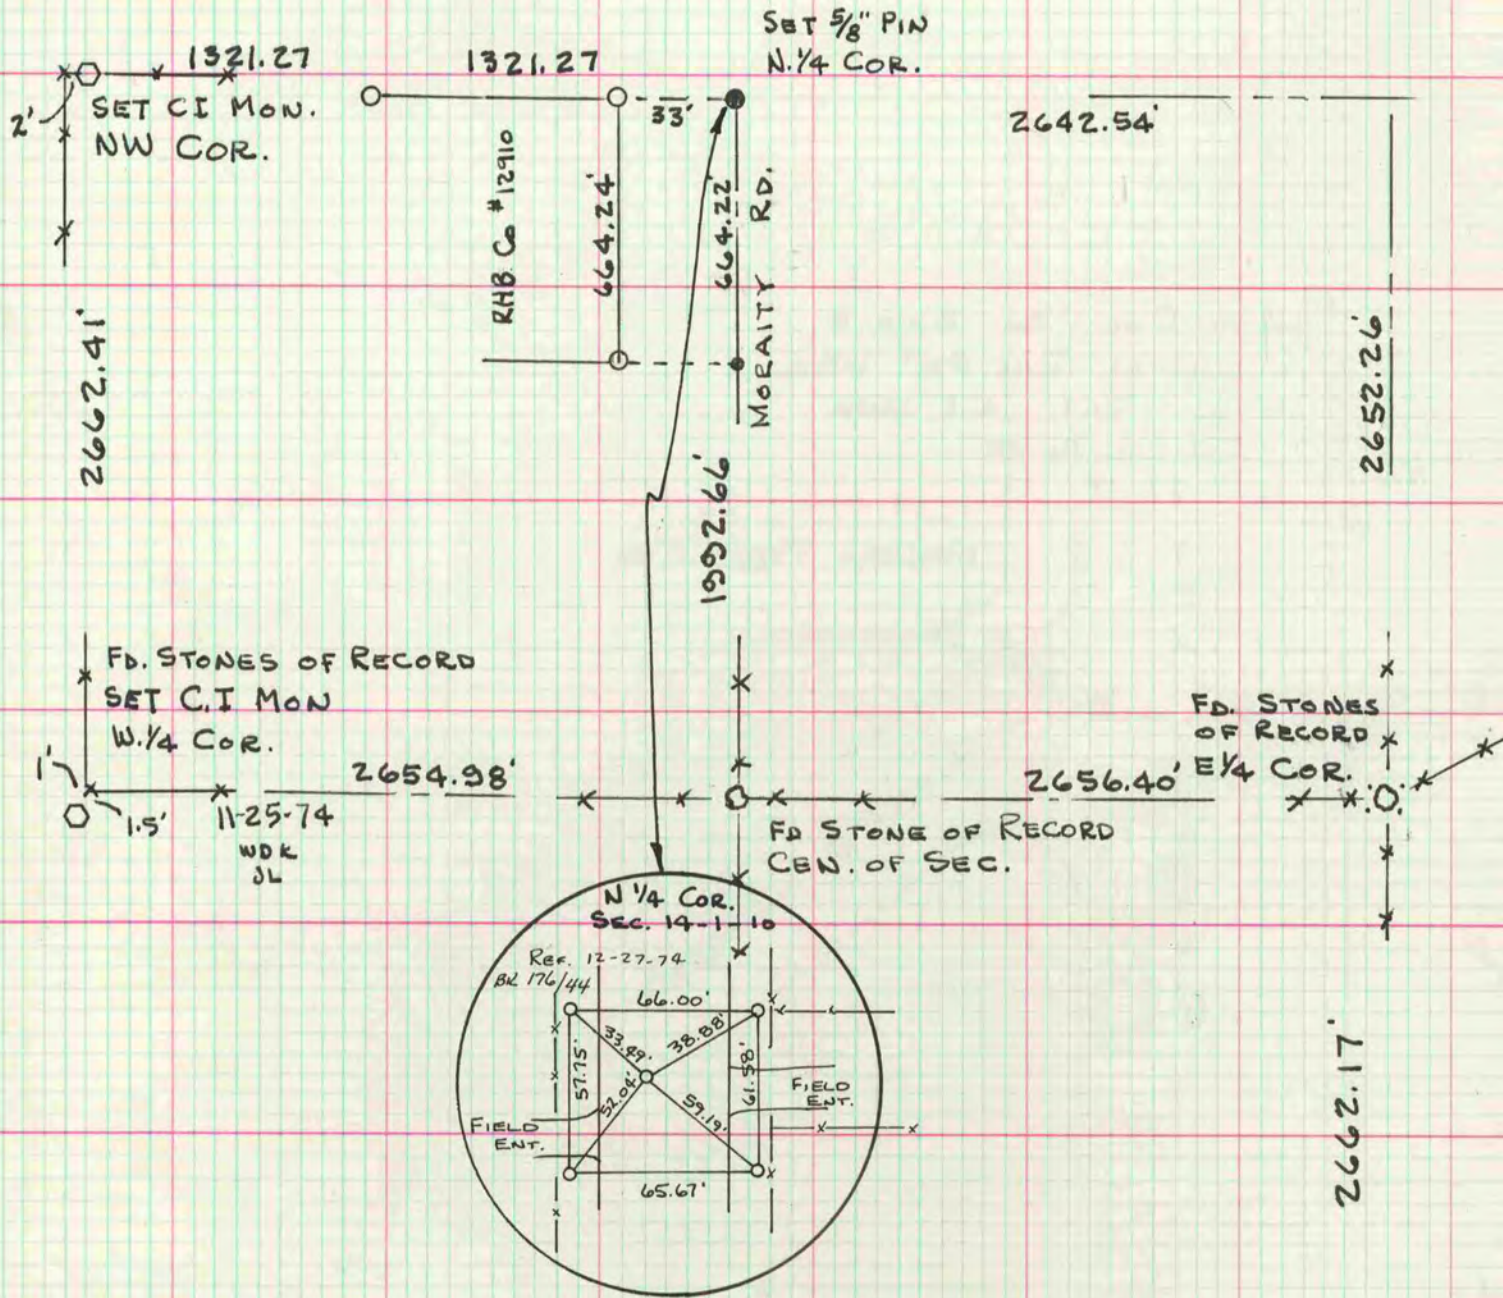 SET 5/8" PIN
N. 1/4 COR.
1321.27
1321.27
2'
SET CI MON.
NW COR.
33'
2642.54'
RHB Co #12910
664.24'
664.22'
MORAITY RD.
2662.41'
2652.26'
1992.66'
FD. STONES OF RECORD
SET C.I MON
W. 1/4 COR.
1'
1.5'
2654.98'
11-25-74
WDK
JL
FD. STONES
OF RECORD
E 1/4 COR.
2656.40'
FD STONE OF RECORD
CEN. OF SEC.
N 1/4 COR.
SEC. 14-1-10
REF. 12-27-74
BK 176/44
66.00'
33.49'
38.88'
57.75'
52.04'
59.19'
61.58'
FIELD
ENT.
FIELD
ENT.
65.67'
2662.17'